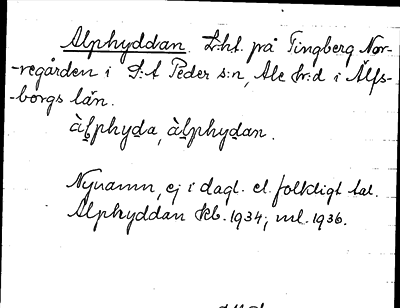 Alphyddan. Lht. på Tingberg Nor-
-regården i S:t Peder s:n, Ale hr:d i Älfs-
-borgs län.
àlphyda, àlphydan.
Nynamn, ej i dagl. el. folkligt tal.
Alphyddan kb. 1934, ml. 1936.